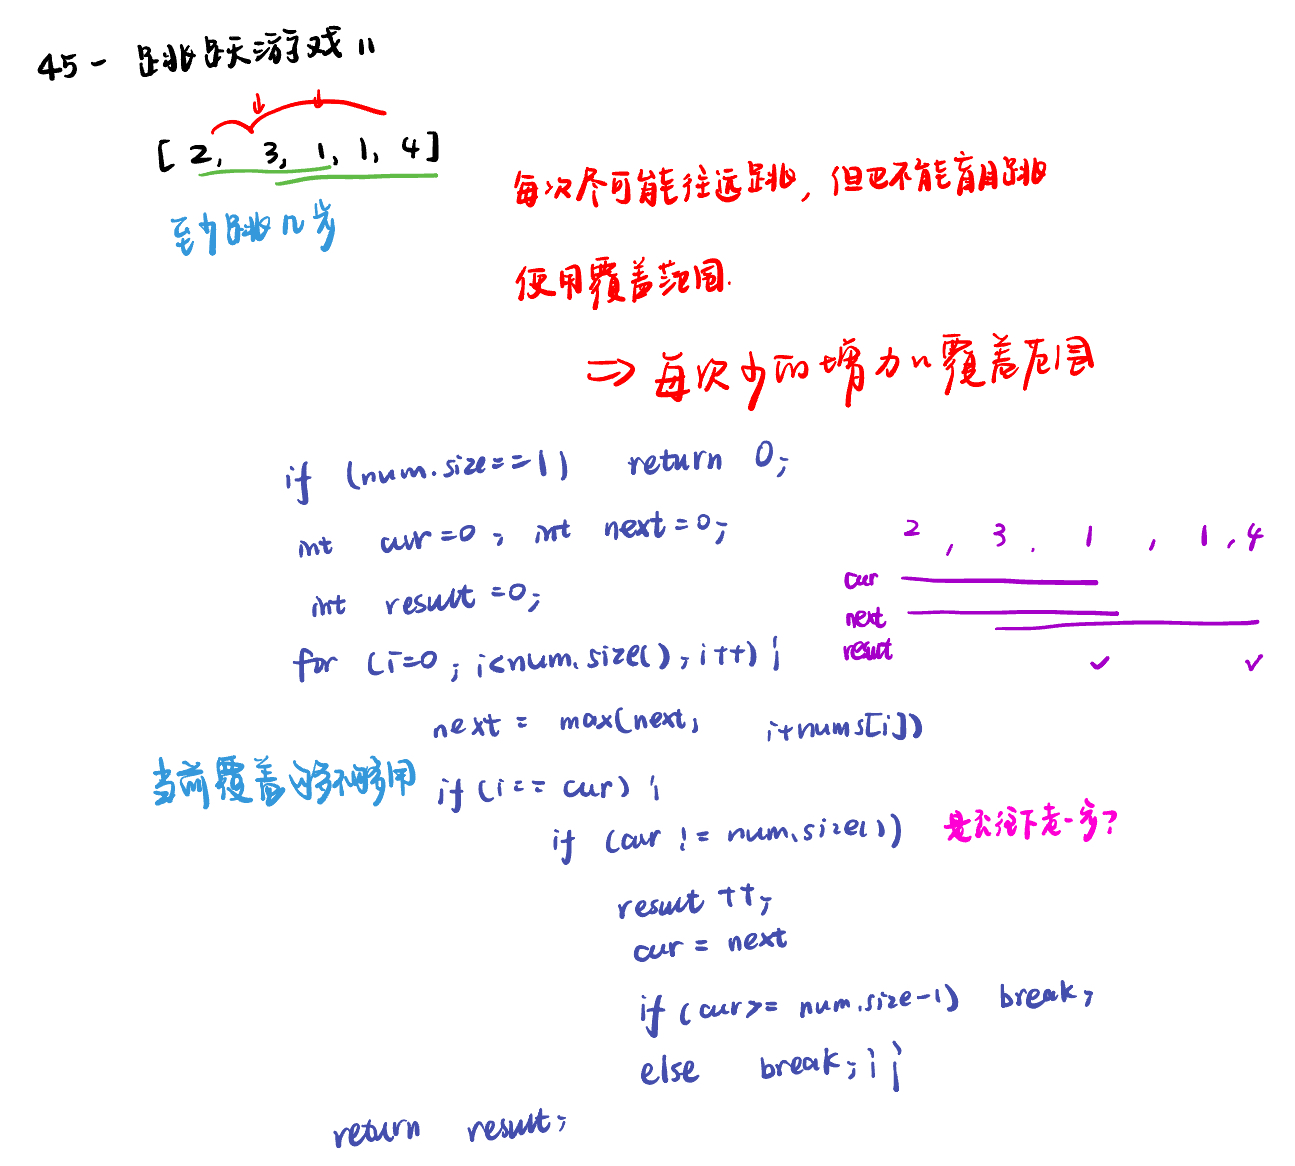 45- 跳跃游戏 II
[ 2, 3, 1, 1, 4 ]
至少跳几步
每次尽可能往远跳, 但也不能盲目跳
使用覆盖范围.
⇒ 每次少的增加覆盖范围
if (num.size==1) return 0;
int cur=0; int next=0;
int result=0;
for (i=0; i<num.size(); i++) {
next = max(next, i+nums[i])
当前覆盖够不够用 if (i== cur) {
if (cur != num.size()) 是否往下走一步?
result ++;
cur = next
if (cur>= num.size-1) break;
else break; } }
return result;
2, 3. 1, 1, 4
cur
next
result ✓ ✓